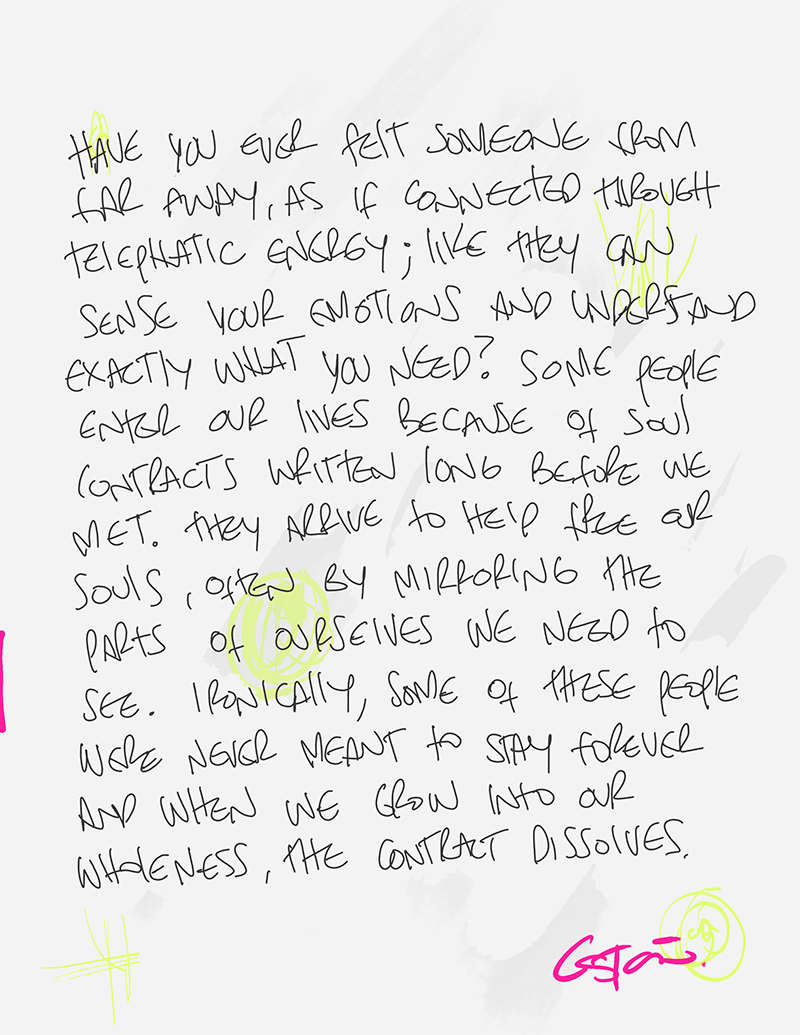 HAVE YOU EVER FELT SOMEONE FROM
FAR AWAY, AS IF CONNECTED THROUGH
TELEPHATIC ENERGY; LIKE THEY CAN
SENSE YOUR EMOTIONS AND UNDERSTAND
EXACTLY WHAT YOU NEED? SOME PEOPLE
ENTER OUR LIVES BECAUSE OF SOUL
CONTRACTS WRITTEN LONG BEFORE WE
MET. THEY ARRIVE TO HELP FREE OUR
SOULS, OFTEN BY MIRRORING THE
PARTS OF OURSELVES WE NEED TO
SEE. IRONICALLY, SOME OF THESE PEOPLE
WERE NEVER MEANT TO STAY FOREVER
AND WHEN WE GROW INTO OUR
WHOLENESS, THE CONTRACT DISSOLVES.